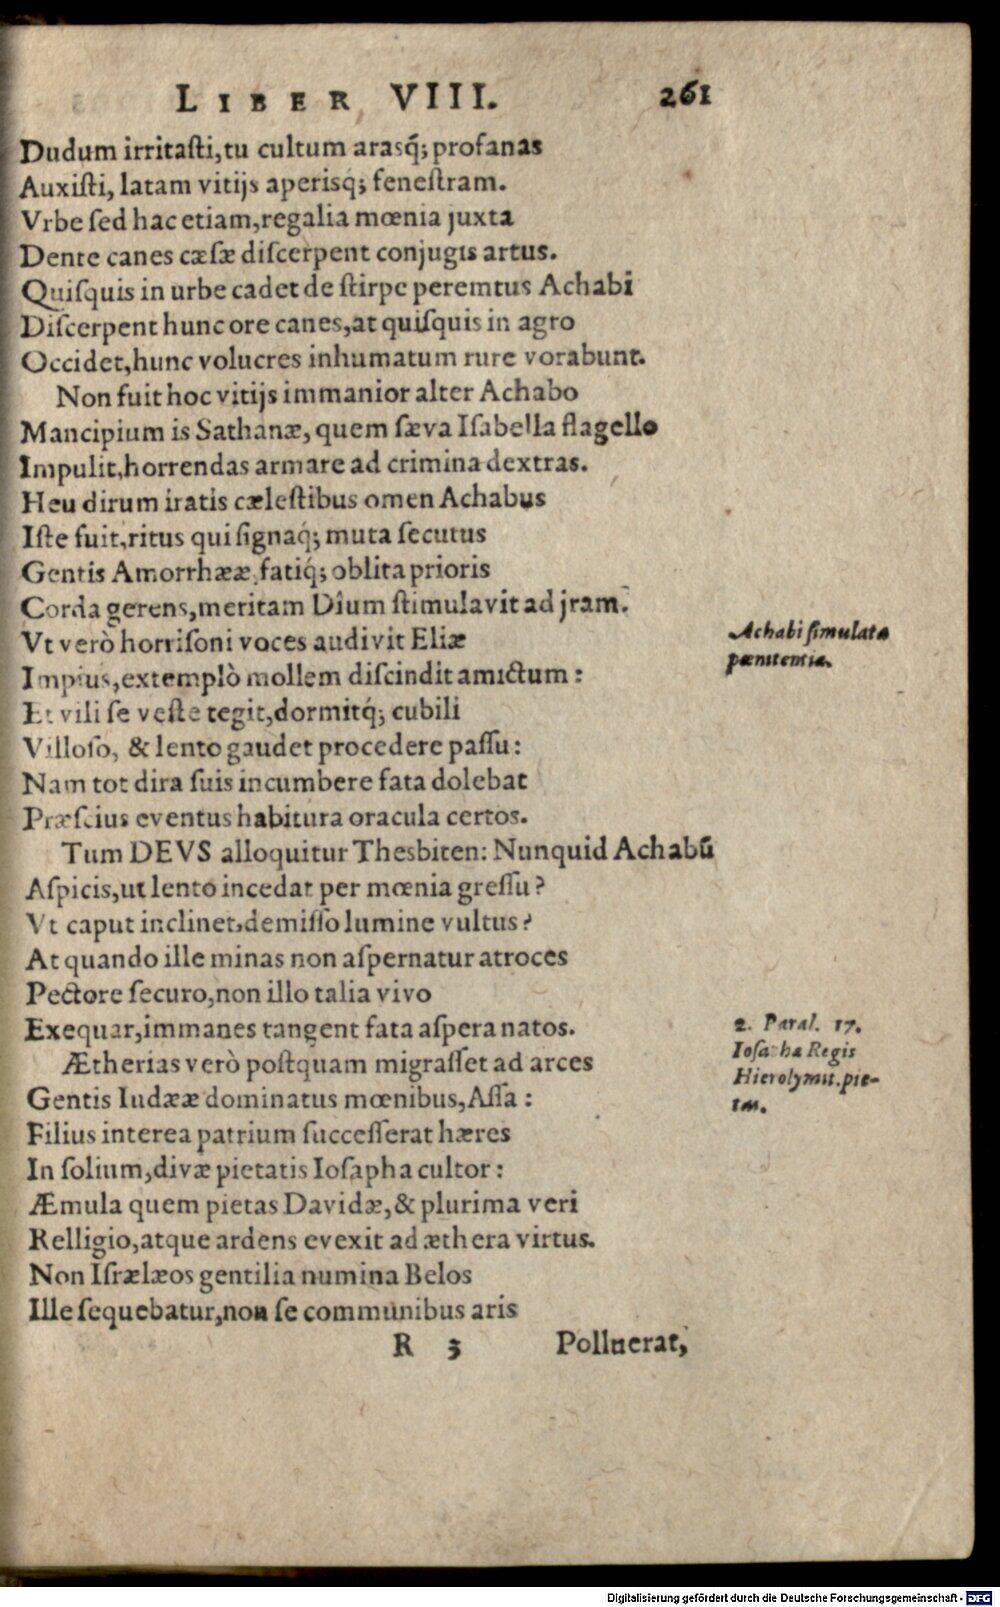 LIBER VIII. 261
Dudum irritaſti, tu cultum arasq́; profanas
Auxiſti, latam vitijs aperisq́; feneſtram.
Vrbe ſed hac etiam, regalia mœnia juxta
Dente canes cæſæ diſcerpent conjugis artus.
Quiſquis in urbe cadet de ſtirpe peremtus Achabi
Diſcerpent hunc ore canes, at quiſquis in agro
Occidet, hunc volucres inhumatum rure vorabunt.
Non fuit hoc vitijs immanior alter Achabo
Mancipium is Sathanæ, quem ſæva Iſabella flagello
Impulit, horrendas armare ad crimina dextras.
Heu dirum iratis cæleſtibus omen Achabus
Iſte fuit, ritus qui ſignaq́; muta ſecutus
Gentis Amorrhææ, fatiq́; oblita prioris
Corda gerens, meritam Dîum ſtimulavit ad jram.
Vt verò horriſoni voces audivit Eliæ
Achabi ſimulata
pœnitentia.
Impius, extemplò mollem diſcindit amictum:
Et vili ſe veſte tegit, dormitq́; cubili
Villoſo, & lento gaudet procedere paſſu:
Nam tot dira ſuis incumbere fata dolebat
Præſcius eventus habitura oracula certos.
Tum DEVS alloquitur Thesbiten: Nunquid Achabũ
Aſpicis, ut lento incedat per mœnia greſſu?
Vt caput inclinet, demiſſo lumine vultus?
At quando ille minas non aſpernatur atroces
Pectore ſecuro, non illo talia vivo
Exequar, immanes tangent fata aſpera natos.
2. Paral. 17.
Ioſapha Regis
Hieroſymit. pie-
tas.
Ætherias verò poſtquam migraſſet ad arces
Gentis Iudææ dominatus mœnibus, Aſſa:
Filius interea patrium ſucceſſerat hæres
In ſolium, divæ pietatis Ioſapha cultor:
Æmula quem pietas Davidæ, & plurima veri
Relligio, atque ardens evexit ad æthera virtus.
Non Iſrælæos gentilia numina Belos
Ille ſequebatur, non ſe communibus aris
R 3 Polluerat,
Digitalisierung gefördert durch die Deutsche Forschungsgemeinschaft - DFG